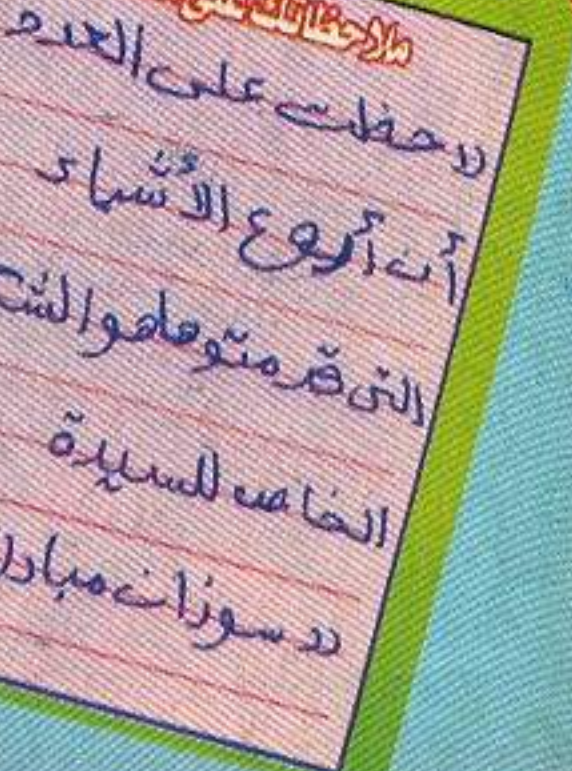 ملاحظاتك على
لاحظت على العدد
أن أروع الأشياء
التى قدمتوها هو الشك
الخاص للسيدة
" سوزان مبارك